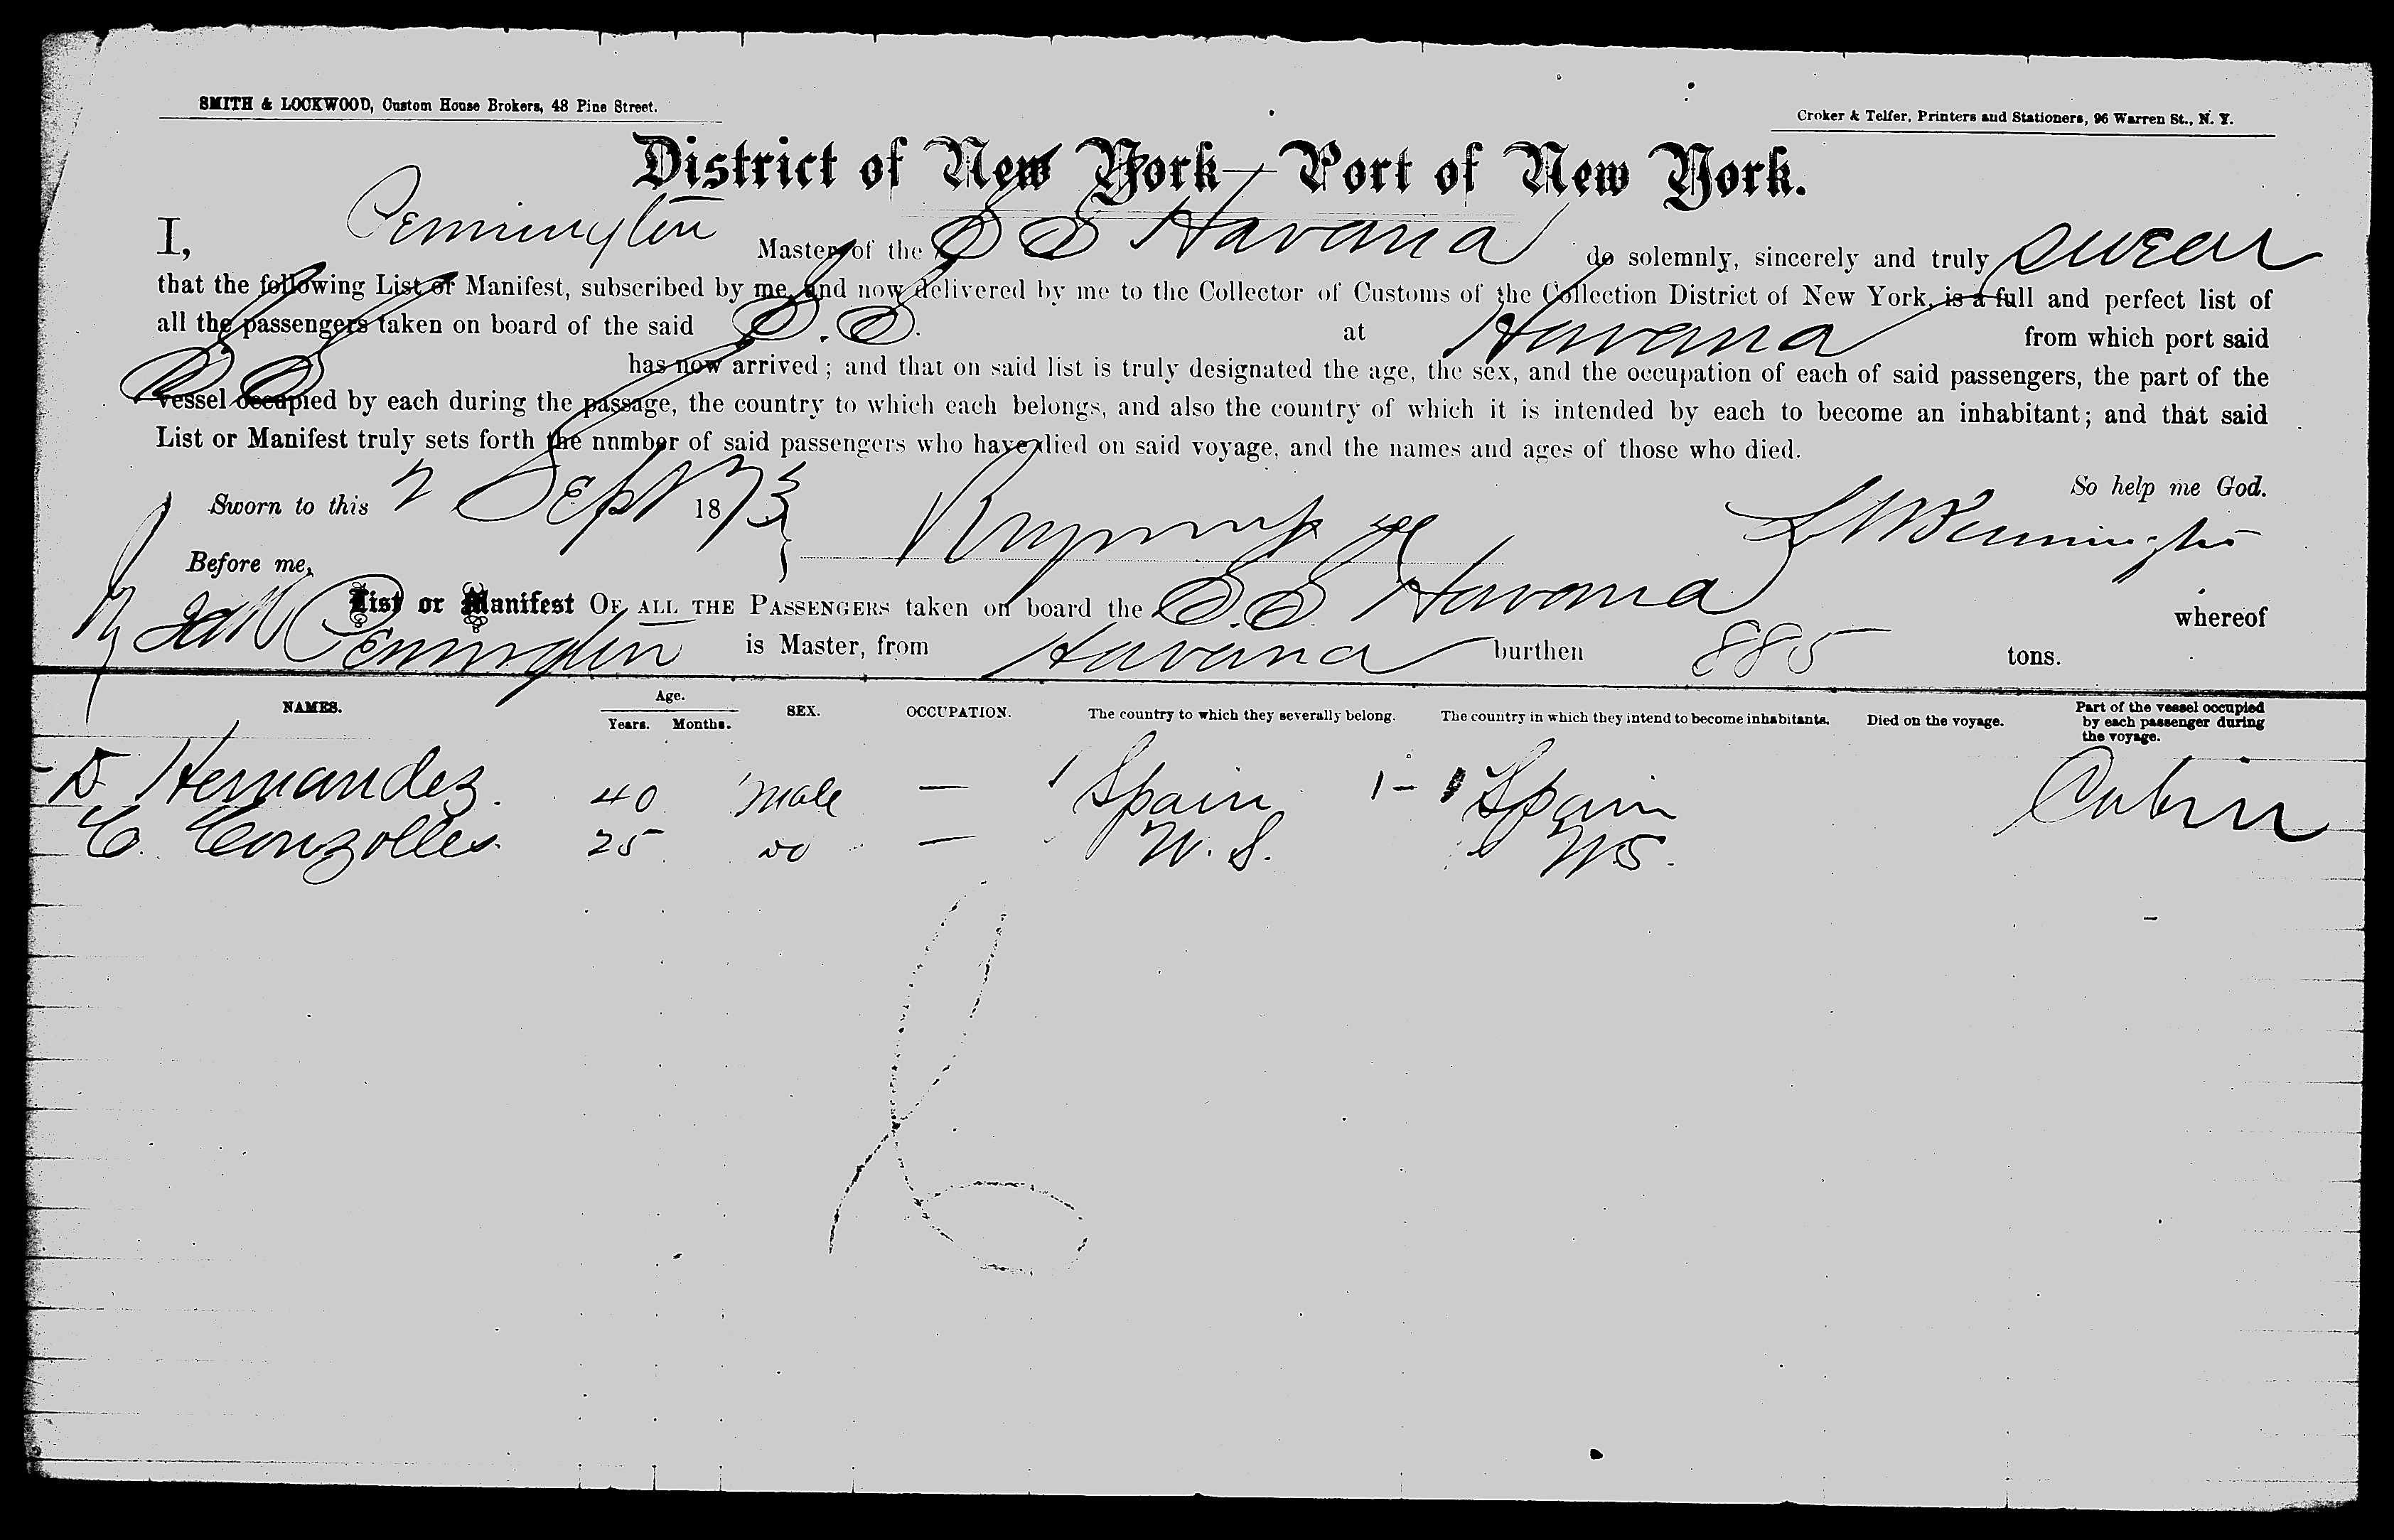 SMITH & LOCKWOOD, Custom House Brokers, 48 Pine Street.
Croker & Telfer, Printers and Stationers, 96 Warren St., N. Y.
District of New York—Port of New York.
I, Pennington Master of the SS Havana do solemnly, sincerely and truly swear
that the following List or Manifest, subscribed by me, and now delivered by me to the Collector of Customs of the Collection District of New York, is a full and perfect list of
all the passengers taken on board of the said S.S. at Havana from which port said
SS has now arrived; and that on said list is truly designated the age, the sex, and the occupation of each of said passengers, the part of the
vessel occupied by each during the passage, the country to which each belongs, and also the country of which it is intended by each to become an inhabitant; and that said
List or Manifest truly sets forth the nnmber of said passengers who have died on said voyage, and the names and ages of those who died.
So help me God.
Sworn to this 2 Sept 1873
Before me,
List or Manifest OF ALL THE PASSENGERS taken on board the S.S. Havana whereof
Pennington is Master, from Havana burthen 885 tons.
NAMES. Age. Years. Months. SEX. OCCUPATION. The country to which they severally belong. The country in which they intend to become inhabitants. Died on the voyage. Part of the vessel occupied by each passenger during the voyage.
D Hernandez. 40 Male — 1 Spain 1 - Spain Cabin
C. Conzolles. 25 do — U.S. US.